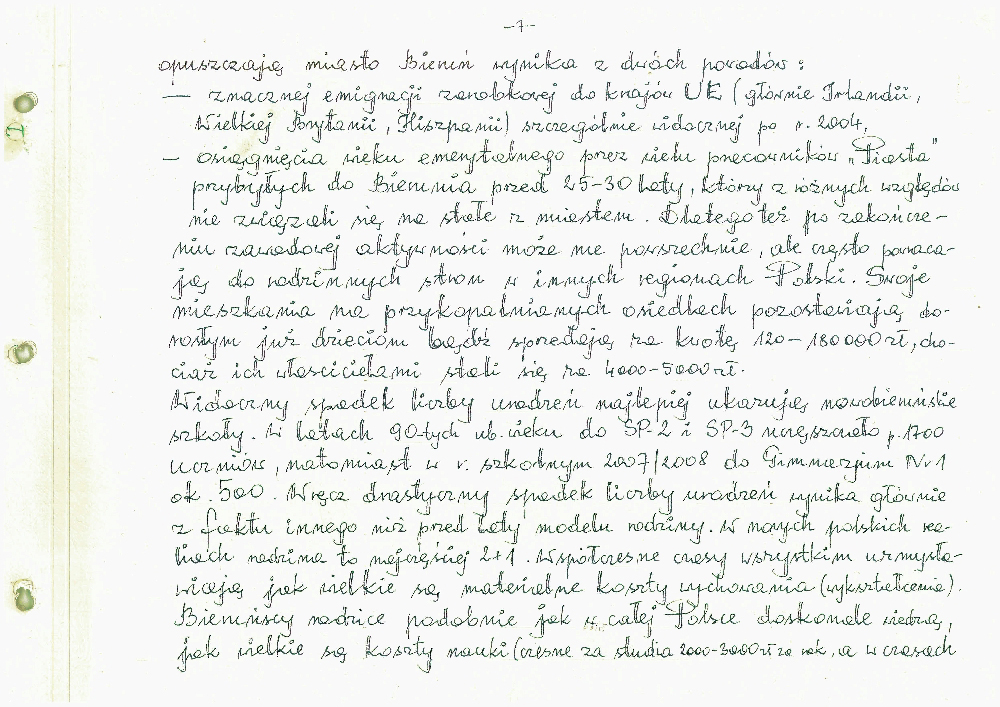 -7-
opuszczają miasto Bieruń wynika z dwóch powodów:
— znacznej emigracji zarobkowej do krajów UE (głównie Irlandii,
Wielkiej Brytanii, Hiszpanii) szczególnie widocznej po r. 2004,
— osiągnięcia wieku emerytalnego przez wielu pracowników „Piasta"
przybyłych do Bierunia przed 25-30 laty, którzy z różnych względów
nie związali się na stałe z miastem. Dlatego też po zakończe-
niu zawodowej aktywności może nie powszechnie, ale często powraca-
ją do rodzinnych stron w innych regionach Polski. Swoje
mieszkania na przykopalnianych osiedlach pozostawiają do-
rosłym już dzieciom bądź sprzedają za kwotę 120-180000 zł, cho-
ciaż ich właścicielami stali się za 4000-5000 zł.
Widoczny spadek liczby urodzeń najlepiej ukazują nowobieruńskie
szkoły. W latach 90-tych ub. wieku do SP-2 i SP-3 uczęszczało p. 1700
uczniów, natomiast w r. szkolnym 2007/2008 do Gimnazjum Nr 1
ok. 500. Wręcz drastyczny spadek liczby urodzeń wynika głównie
z faktu innego niż przed laty modelu rodziny. W nowych polskich rea-
liach rodzina to najczęściej 2+1. Współczesne czasy wszystkim uzmysła-
wiają jak wielkie są materialne koszty wychowania (wykształcenia).
Bieruńscy rodzice podobnie jak w całej Polsce doskonale wiedzą,
jak wielkie są koszty nauki (czesne za studia 2000-3000 zł za rok, a w czasach